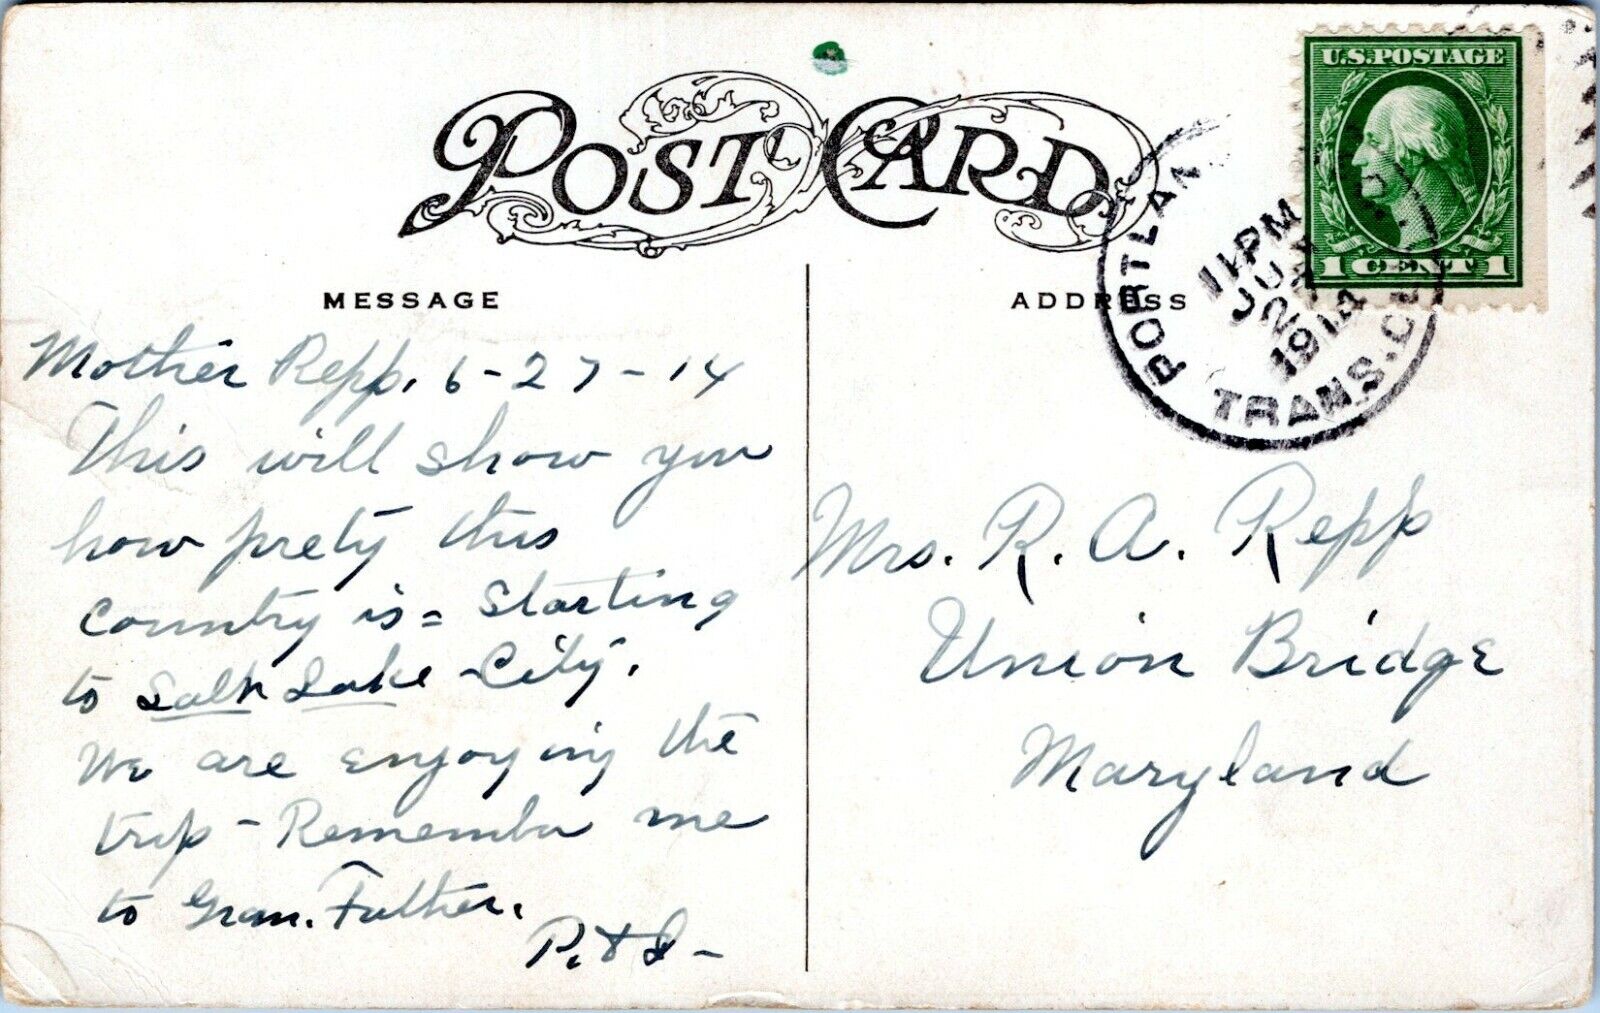 POST CARD
U.S. POSTAGE
1 CENT 1
MESSAGE
ADDRESS
PORTLAN
11 PM
1914
TRANS. CL
Mother Repp, 6-27-14
This will show you
how prety this
Country is = Starting
to Salt Lake City.
We are enjoying the
trip - Remember me
to Gran. Father.
P. &
Mrs. R. A. Repp
Union Bridge
Maryland